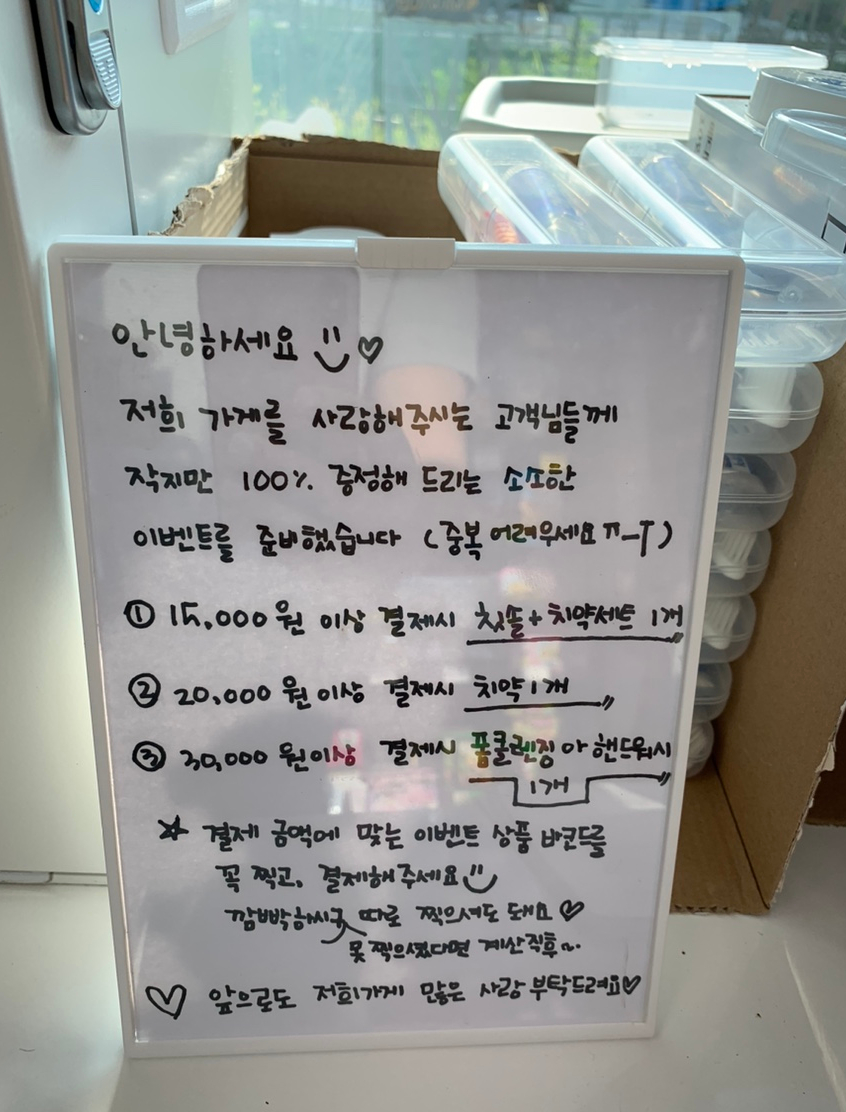 안녕하세요
저희 가게를 사랑해주시는 고객님들께
작지만 100% 증정해 드리는 소소한
이벤트를 준비했습니다 (중복 어려우세요 ㅠ-ㅜ)
① 15,000원 이상 결제시 칫솔+치약세트 1개
② 20,000원 이상 결제시 치약 1개
③ 30,000원 이상 결제시 폼클렌징 아 핸드워시
1개
☆ 결제 금액에 맞는 이벤트 상품 바코드를
꼭 찍고, 결제해주세요
깜빡하시구 따로 찍으셔도 돼요 ♡
못 찍으셨다면 계산직후~
♡ 앞으로도 저희가게 많은 사랑 부탁드려요♡